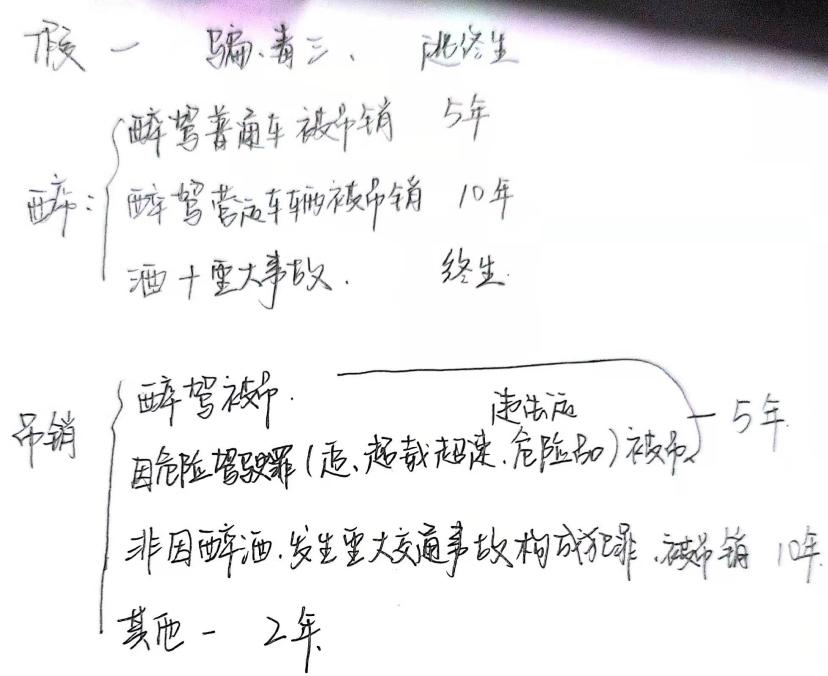 假一 骗、毒三、 逃终生
醉驾普通车被吊销 5年
醉: 醉驾营运车辆被吊销 10年
酒+重大事故. 终生.
醉驾被吊.
违法运 — 5年
吊销
因危险驾驶罪(追、超载超速、危险品)被吊、
非因醉酒、发生重大交通事故构成犯罪、被吊销 10年
其他 - 2年